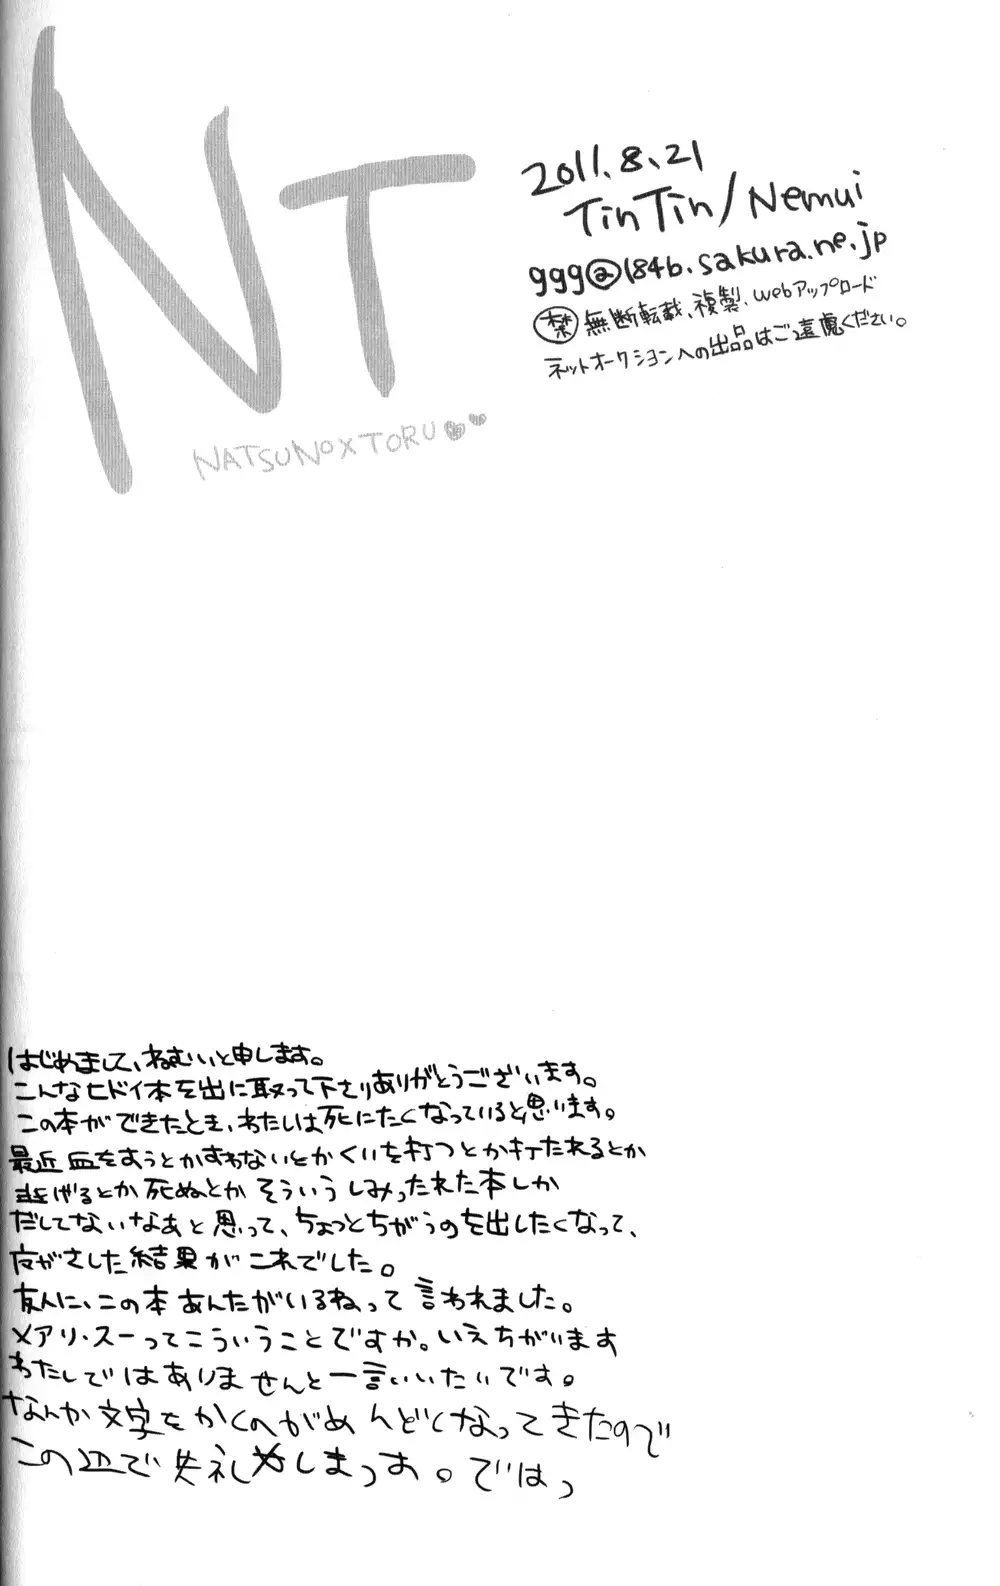 NT
NATSUNO×TORU
2011.8.21
TinTin/Nemui
ggg@184b.sakura.ne.jp
禁 無断転載、複製、webアップロード
ネットオークションへの出品はご遠慮ください。
はじめまして、ねむいと申します。
こんなヒドイ本を出に取って下さりありがとうございます。
この本ができたとき、わたしは死にたくなっていると思います。
最近血をすうとかすわないとかくいを打つとか打たれるとか
逃げるとか死ぬとかそういうしみったれた本しか
だしてないなぁと思って、ちょっとちがうのを出したくなって、
夜ガさした結果がこれでした。
友人に、この本あんたがいるねって言われました。
メアリ・スーってこういうことですか。いえちがいます
わたしではありませんと一言いいたいです。
なんか文字をかくのがめんどくなってきたので
この辺で失礼かしまっす。ではっ